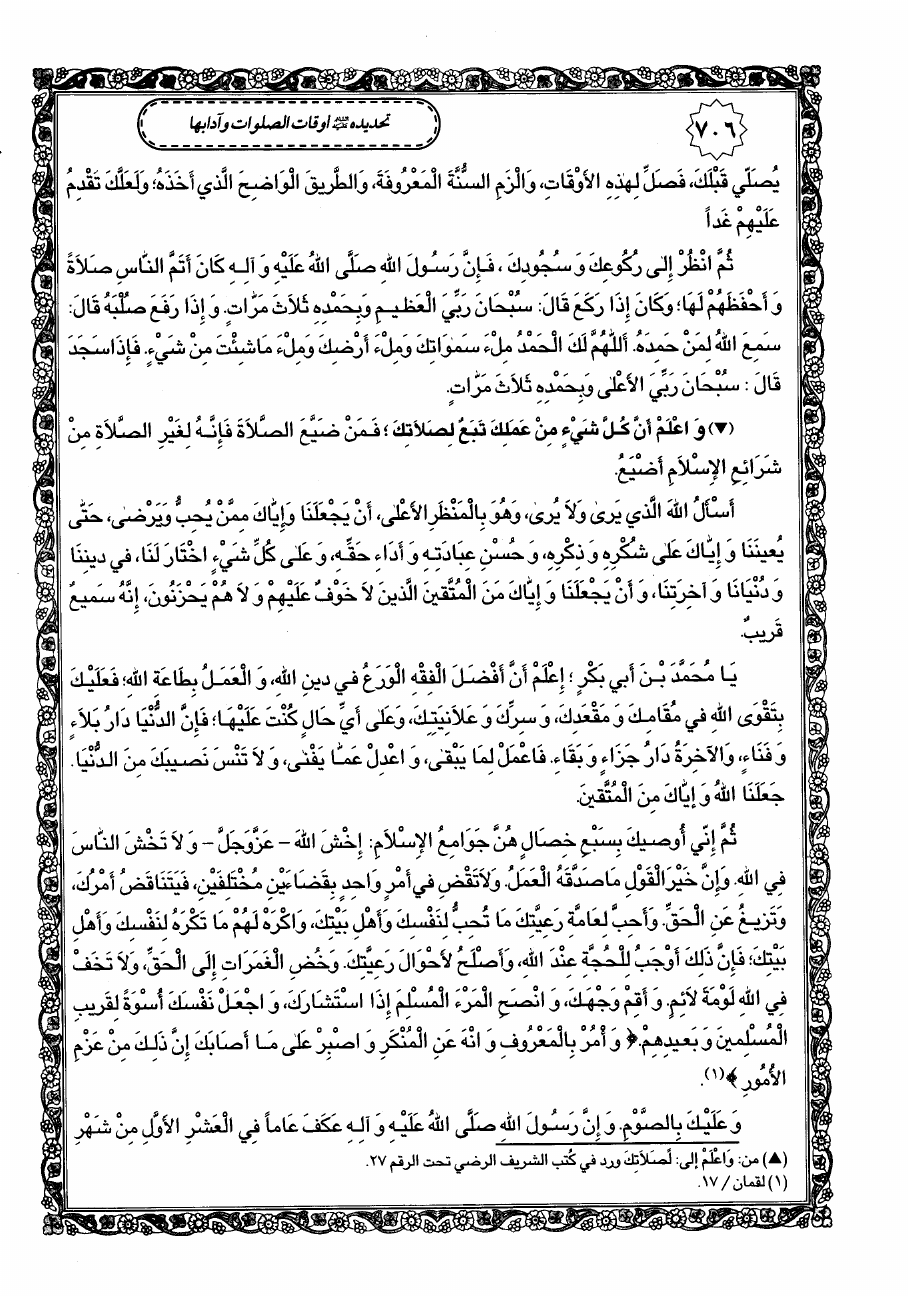 ٧٠٦
تحديده ﷺ أوقات الصلوات وآدابها
يُصَلّي قَبْلَكَ، فَصَلِّ لِهٰذِهِ الأَوْقَاتِ، وَالْزَمِ السُّنَّةَ الْمَعْرُوفَةَ، وَالطَّريقَ الْوَاضِحَ الَّذي أَخَذَهُ؛ وَلَعَلَّكَ تَقْدِمُ
عَلَيْهِمْ غَداً
ثُمَّ انْظُرْ إِلىٰ رُكُوعِكَ وَ سُجُودِكَ، فَإِنَّ رَسُولَ اللهِ صَلَّى اللهُ عَلَيْهِ وَ آلِهِ كَانَ أَتَمَّ النّاسِ صَلَاةً
وَ أَحْفَظَهُمْ لَهَا؛ وَكَانَ إِذَا رَكَعَ قَالَ: سُبْحَانَ رَبِّيَ الْعَظيمِ وَبِحَمْدِهِ ثَلَاثَ مَرّاتٍ. وَ إِذَا رَفَعَ صُلْبَهُ قَالَ:
سَمِعَ اللهُ لِمَنْ حَمِدَهُ. أَللّٰهُمَّ لَكَ الْحَمْدُ مِلْءَ سَمٰوَاتِكَ وَمِلْءَ أَرْضِكَ وَمِلْءَ مَاشِئْتَ مِنْ شَيْءٍ. فَإِذَاسَجَدَ
قَالَ : سُبْحَانَ رَبِّيَ الأَعْلىٰ وَبِحَمْدِهِ ثَلَاثَ مَرّاتٍ.
(▼) وَ اعْلَمْ أَنَّ كُلَّ شَيْءٍ مِنْ عَمَلِكَ تَبَعٌ لِصَلَاتِكَ ؛ فَمَنْ ضَيَّعَ الصَّلَاةَ فَإِنَّهُ لِغَيْرِ الصَّلَاةِ مِنْ
شَرَائِعِ الإِسْلَامِ أَضْيَعُ.
أَسْأَلُ اللهَ الَّذي يَرىٰ وَلَا يُرىٰ، وَهُوَ بِالْمَنْظَرِ الأَعْلىٰ، أَنْ يَجْعَلَنَا وَإِيّاكَ مِمَّنْ يُحِبُّ وَيَرْضىٰ، حَتّىٰ
يُعينَنَا وَ إِيّاكَ عَلىٰ شُكْرِهِ وَ ذِكْرِهِ، وَ حُسْنِ عِبَادَتِهِ وَ أَدَاءِ حَقِّهِ، وَ عَلىٰ كُلِّ شَيْءٍ اخْتَارَ لَنَا، في دينِنَا
وَ دُنْيَانَا وَ آخِرَتِنَا، وَ أَنْ يَجْعَلَنَا وَ إِيّاكَ مَنَ الْمُتَّقينَ الَّذينَ لَا خَوْفٌ عَلَيْهِمْ وَ لَا هُمْ يَحْزَنُونَ، إِنَّهُ سَميعٌ
قَريبٌ.
يَا مُحَمَّدَ بْنَ أَبي بَكْرٍ ؛ إِعْلَمْ أَنَّ أَفْضَلَ الْفِقْهِ الْوَرَعُ في دينِ اللهِ، وَ الْعَمَلُ بِطَاعَةِ اللهِ؛ فَعَلَيْكَ
بِتَقْوَى اللهِ في مُقَامِكَ وَ مَقْعَدِكَ، وَ سِرِّكَ وَ عَلَانِيَتِكَ، وَعَلىٰ أَيِّ حَالٍ كُنْتَ عَلَيْهَا؛ فَإِنَّ الدُّنْيَا دَارُ بَلَاءٍ
وَ فَنَاءٍ، وَالآخِرَةُ دَارُ جَزَاءٍ وَ بَقَاءٍ. فَاعْمَلْ لِمَا يَبْقىٰ، وَ اعْدِلْ عَمّا يَفْنىٰ، وَ لَا تَنْسَ نَصيبَكَ مِنَ الدُّنْيَا.
جَعَلَنَا اللهُ وَ إِيّاكَ مِنَ الْمُتَّقينَ.
ثُمَّ إِنّي أُوصيكَ بِسَبْعِ خِصَالٍ هُنَّ جَوَامِعُ الإِسْلَامِ: إِخْشَ اللهَ – عَزَّوَجَلَّ – وَ لَا تَخْشَ النّاسَ
فِي اللهِ. وَإِنَّ خَيْرَالْقَوْلِ مَاصَدَّقَهُ الْعَمَلُ. وَلَاتَقْضِ في أَمْرٍ وَاحِدٍ بِقَضَاءَيْنِ مُخْتَلِفَيْنِ، فَيَتَنَاقَضُ أَمْرُكَ،
وَتَزيغُ عَنِ الْحَقِّ. وَأَحِبَّ لِعَامَّةِ رَعِيَّتِكَ مَا تُحِبُّ لِنَفْسِكَ وَأَهْلِ بَيْتِكَ، وَاكْرَهْ لَهُمْ مَا تَكْرَهُ لِنَفْسِكَ وَأَهْلِ
بَيْتِكَ؛ فَإِنَّ ذٰلِكَ أَوْجَبُ لِلْحُجَّةِ عِنْدَ اللهِ، وَأَصْلَحُ لأَحْوَالِ رَعِيَّتِكَ. وَخُضِ الْغَمَرَاتِ إِلَى الْحَقِّ، وَلَا تَخَفْ
فِي اللهِ لَوْمَةَ لَائِمٍ. وَ أَقِمْ وَجْهَكَ، وَ انْصَحِ الْمَرْءَ الْمُسْلِمَ إِذَا اسْتَشَارَكَ، وَ اجْعَلْ نَفْسَكَ أُسْوَةً لِقَريبِ
الْمُسْلِمينَ وَ بَعيدِهِمْ. ﴿ وَ أْمُرْ بِالْمَعْرُوفِ وَ انْهَ عَنِ الْمُنْكَرِ وَ اصْبِرْ عَلىٰ مَا أَصَابَكَ إِنَّ ذٰلِكَ مِنْ عَزْمِ
الأُمُورِ ﴾(١).
وَ عَلَيْكَ بِالصَّوْمِ. وَ إِنَّ رَسُولَ اللهِ صَلَّى اللهُ عَلَيْهِ وَ آلِهِ عَكَفَ عَاماً فِي الْعَشْرِ الأَوَّلِ مِنْ شَهْرِ
(▲) من: وَاعْلَمْ إلى: لِصَلَاتِكَ ورد في كُتب الشريف الرضي تحت الرقم ٢٧.
(١) لقمان / ١٧.